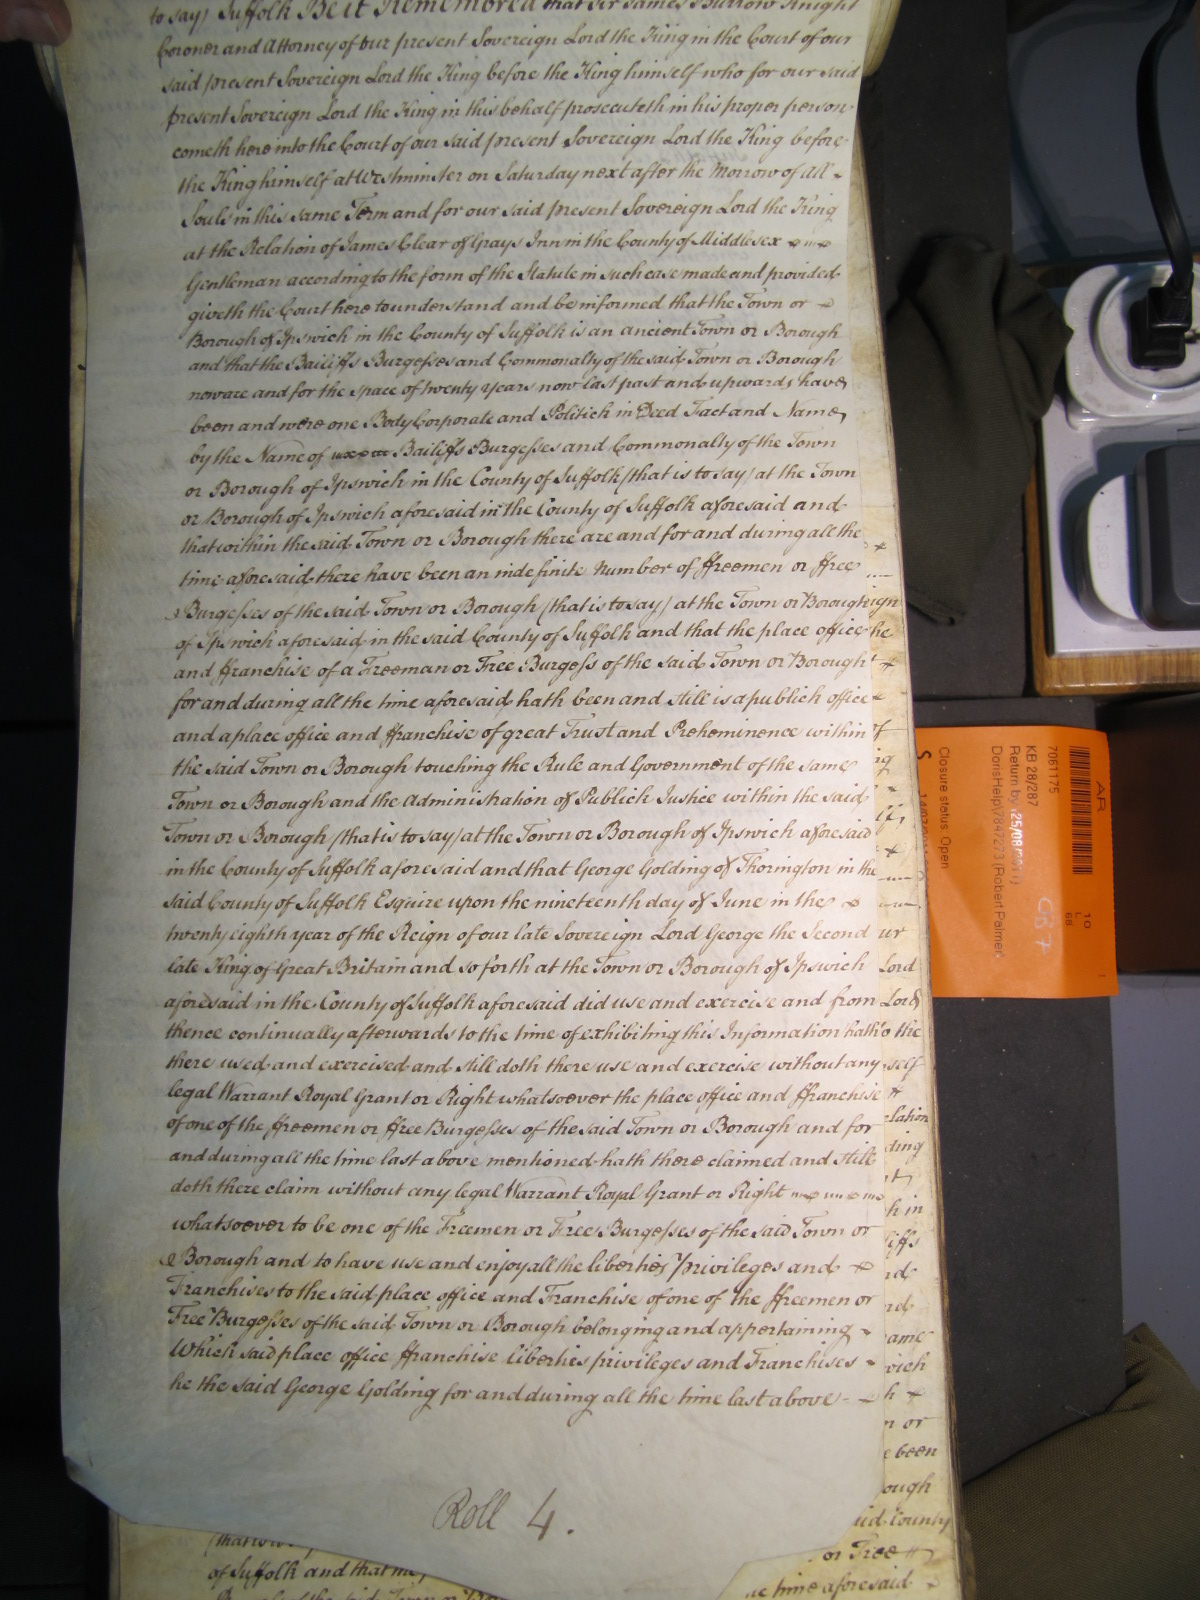 to say) Suffolk Be it Remembered that Sir James Burrow Knight
Coroner and Attorney of our present Sovereign Lord the King in the Court of our
said present Sovereign Lord the King before the King himself who for our said
present Sovereign Lord the King in this behalf prosecuteth in his proper person
cometh here into the Court of our said present Sovereign Lord the King before
the King himself at Westminster on Saturday next after the Morrow of All
Souls in this same Term and for our said present Sovereign Lord the King
at the Relation of James Clear of Grays Inn in the County of Middlesex
Gentleman according to the form of the Statute in such case made and provided
giveth the Court here to understand and be informed that the Town or
Borough of Ipswich in the County of Suffolk is an ancient Town or Borough
and that the Bailiffs Burgesses and Commonalty of the said Town or Borough
now are and for the space of twenty years now last past and upwards have
been and were one Body Corporate and Politick in Deed Fact and Name
by the Name of Bailiffs Burgesses and Commonalty of the Town
or Borough of Ipswich in the County of Suffolk (that is to say) at the Town
or Borough of Ipswich aforesaid in the County of Suffolk aforesaid and
that within the said Town or Borough there are and for and during all the
time aforesaid there have been an indefinite Number of ffreemen or ffree
Burgesses of the said Town or Borough (that is to say) at the Town or Borough
of Ipswich aforesaid in the said County of Suffolk and that the place office
and ffranchise of a Freeman or Free Burgess of the said Town or Borough
for and during all the time aforesaid hath been and still is a publick office
and a place office and ffranchise of great Trust and Preheminence within
the said Town or Borough touching the Rule and Government of the same
Town or Borough and the Administration of Publick Justice within the said
Town or Borough (that is to say) at the Town or Borough of Ipswich aforesaid
in the County of Suffolk aforesaid and that George Golding of Thorington in the
said County of Suffolk Esquire upon the nineteenth day of June in the
twenty eighth year of the Reign of our late Sovereign Lord George the Second
late King of Great Britain and so forth at the Town or Borough of Ipswich
aforesaid in the County of Suffolk aforesaid did use and exercise and from
thence continually afterwards to the time of exhibiting this Information hath
there used and exercised and still doth there use and exercise without any
legal Warrant Royal Grant or Right whatsoever the place office and ffranchise
of one of the ffreemen or ffree Burgesses of the said Town or Borough and for
and during all the time last above mentioned hath there claimed and still
doth there claim without any legal Warrant Royal Grant or Right
whatsoever to be one of the Freemen or Free Burgesses of the said Town or
Borough and to have use and enjoy all the liberties Privileges and
Franchises to the said place office and Franchise of one of the ffreemen or
Free Burgesses of the said Town or Borough belonging and appertaining
Which said place office ffranchise liberties privileges and Franchises
he the said George Golding for and during all the time last above
Roll 4.
of Suffolk and that
ur
Lord
Lord
o the
self
elation
ding
h in
iffs
ame
wich
n or
e been
ough
aid County
or Free
time aforesaid
AR
7061175
KB 28/287
Return by (25/08/2011)
DorisHelp(7847273 (Robert Palmer
Closure status: Open